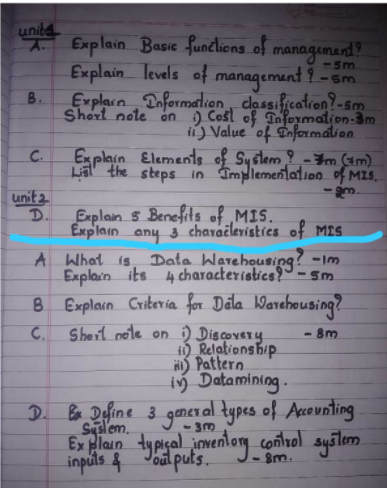 unit1
A. Explain Basic functions of management? -5m
Explain levels of management? -5m
B. Explain Information classification?-5m
Short note on i) Cost of Information-3m
ii) Value of Information
C. Explain Elements of System? - 7m (7m)
List the steps in Implementation of MIS.
-2m.
unit2
D. Explain 5 Benefits of MIS.
Explain any 3 characteristics of MIS
A What is Data Warehousing? -1m
Explain its 4 characteristics? -5m
B Explain Criteria for Data Warehousing?
C. Short note on i) Discovery -8m
ii) Relationship
iii) Pattern
iv) Datamining.
D. Ex Define 3 general types of Accounting
System. -3m
Explain typical inventory control system
inputs & outputs. -8m.